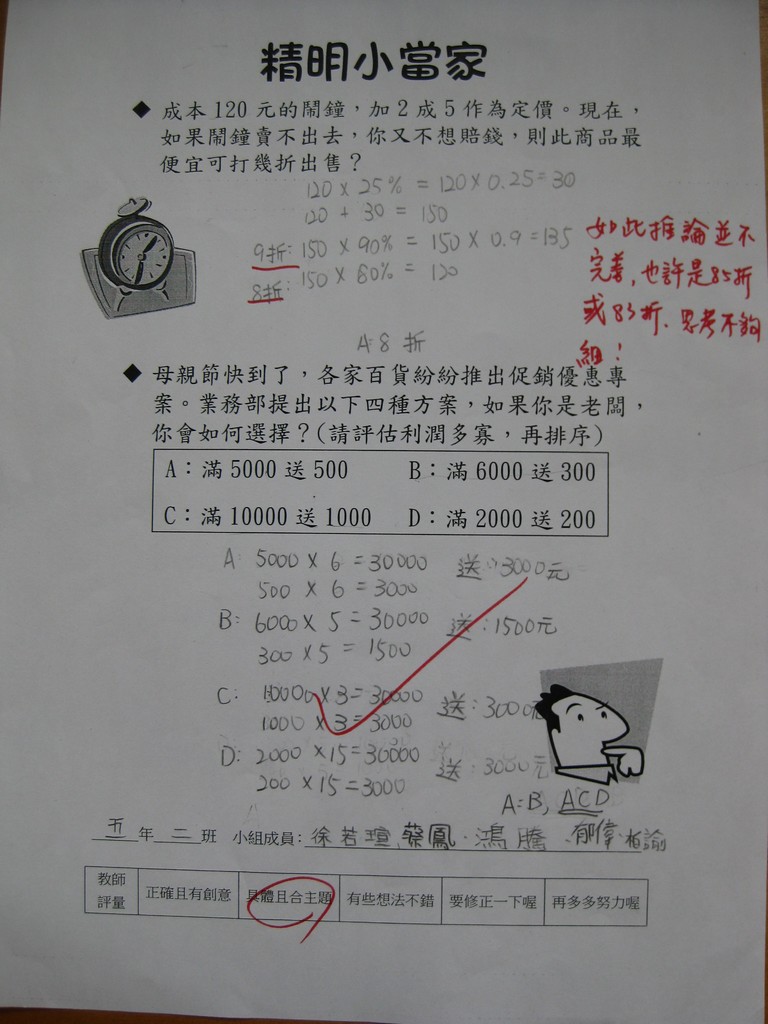 精明小當家
◆ 成本 120 元的鬧鐘，加 2 成 5 作為定價。現在，
如果鬧鐘賣不出去，你又不想賠錢，則此商品最
便宜可打幾折出售？
120 × 25% = 120 × 0.25 = 30
120 + 30 = 150
9折: 150 × 90% = 150 × 0.9 = 135
8折: 150 × 80% = 120
如此推論並不
完善，也許是85折
或83折、思考不夠
細！
A: 8 折
◆ 母親節快到了，各家百貨紛紛推出促銷優惠專
案。業務部提出以下四種方案，如果你是老闆，
你會如何選擇？(請評估利潤多寡，再排序)
A：滿 5000 送 500 B：滿 6000 送 300
C：滿 10000 送 1000 D：滿 2000 送 200
A 5000 × 6 = 30000 送：3000元
500 × 6 = 3000
B: 6000 × 5 = 30000 送：1500元
300 × 5 = 1500
C: 10000 × 3 = 30000 送：3000元
1000 × 3 = 3000
D: 2000 × 15 = 30000 送：3000元
200 × 15 = 3000
A: B, ACD
五 年 二 班 小組成員：徐若瑄、蔡鳳、鴻騰、郁偉、柏諭
教師評量 正確且有創意 具體且合主題 有些想法不錯 要修正一下喔 再多多努力喔